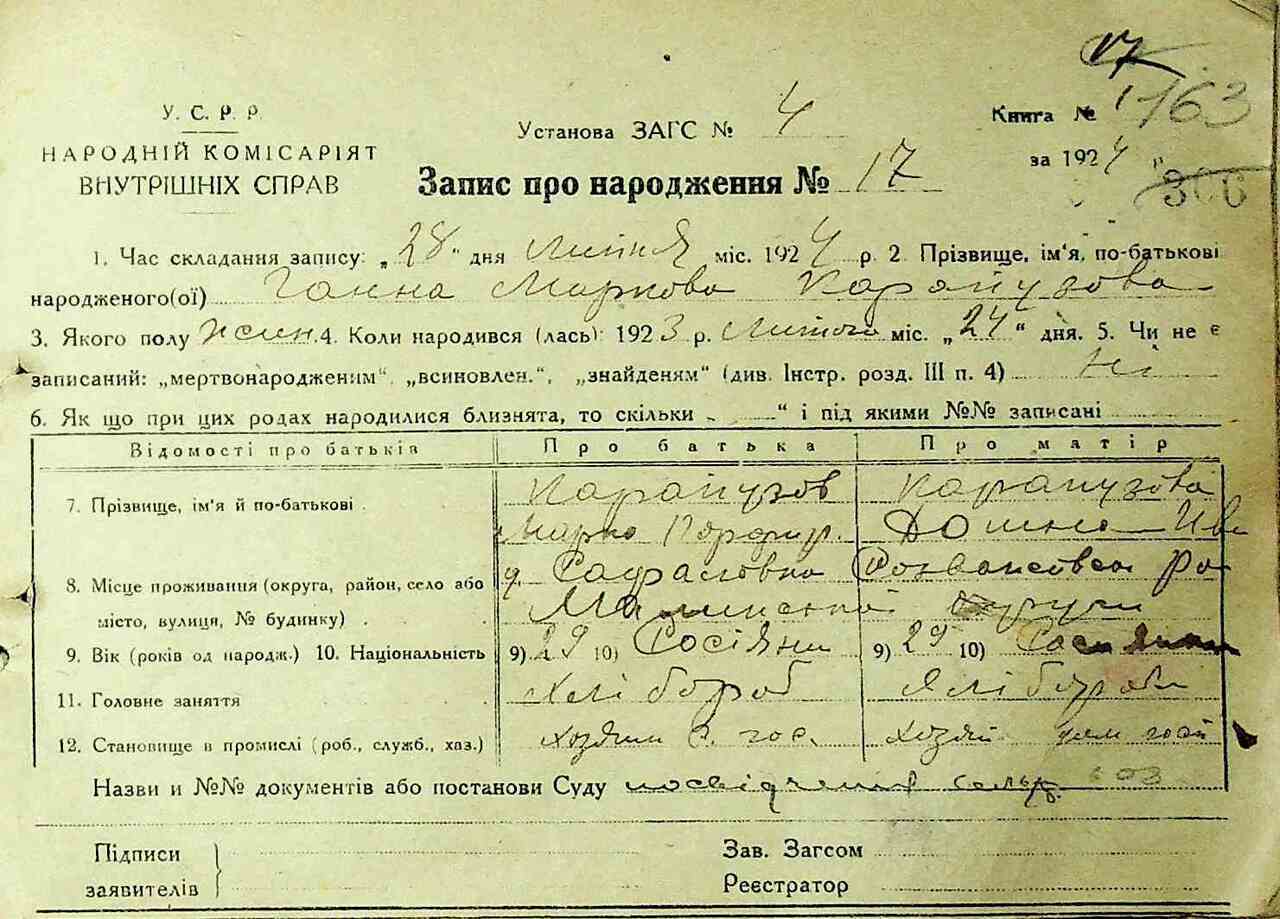 17
163
У. С. Р. Р.
НАРОДНІЙ КОМІСАРІЯТ
ВНУТРІШНІХ СПРАВ
Установа ЗАГС № 4
Книга №
за 1924
Запис про народження № 17
306
1. Час складання запису: „28" дня Липня міс. 1924 р. 2. Прізвище, ім'я, по-батькові
народженого(ої) Ганна Маркова Карапузова
3. Якого полу жин. 4. Коли народився (лась): 1923 р. Лютого міс. „24" дня. 5. Чи не є
записаний: „мертвонародженим", „всиновлен.", „знайденям" (див. Інстр. розд. III п. 4) Ні
6. Як що при цих родах народилися близнята, то скільки „ " і під якими №№ записані
Відомості про батьків Про батька Про матір
7. Прізвище, ім'я й по-батькові Карапузов Карапузова
Марко Порфир. Домна Ив
8. Місце проживання (округа, район, село або
місто, вулиця, № будинку)
9. Вік (років од народж.) 10. Національність 9) 29 10) Росіяни 9) 29 10)
11. Головне заняття Хлібороб
12. Становище в промислі (роб., служб., хаз.) хозяин
Назви и №№ документів або постанови Суду посвідчення сельр.
Підписи
заявителів
Зав. Загсом
Реєстратор